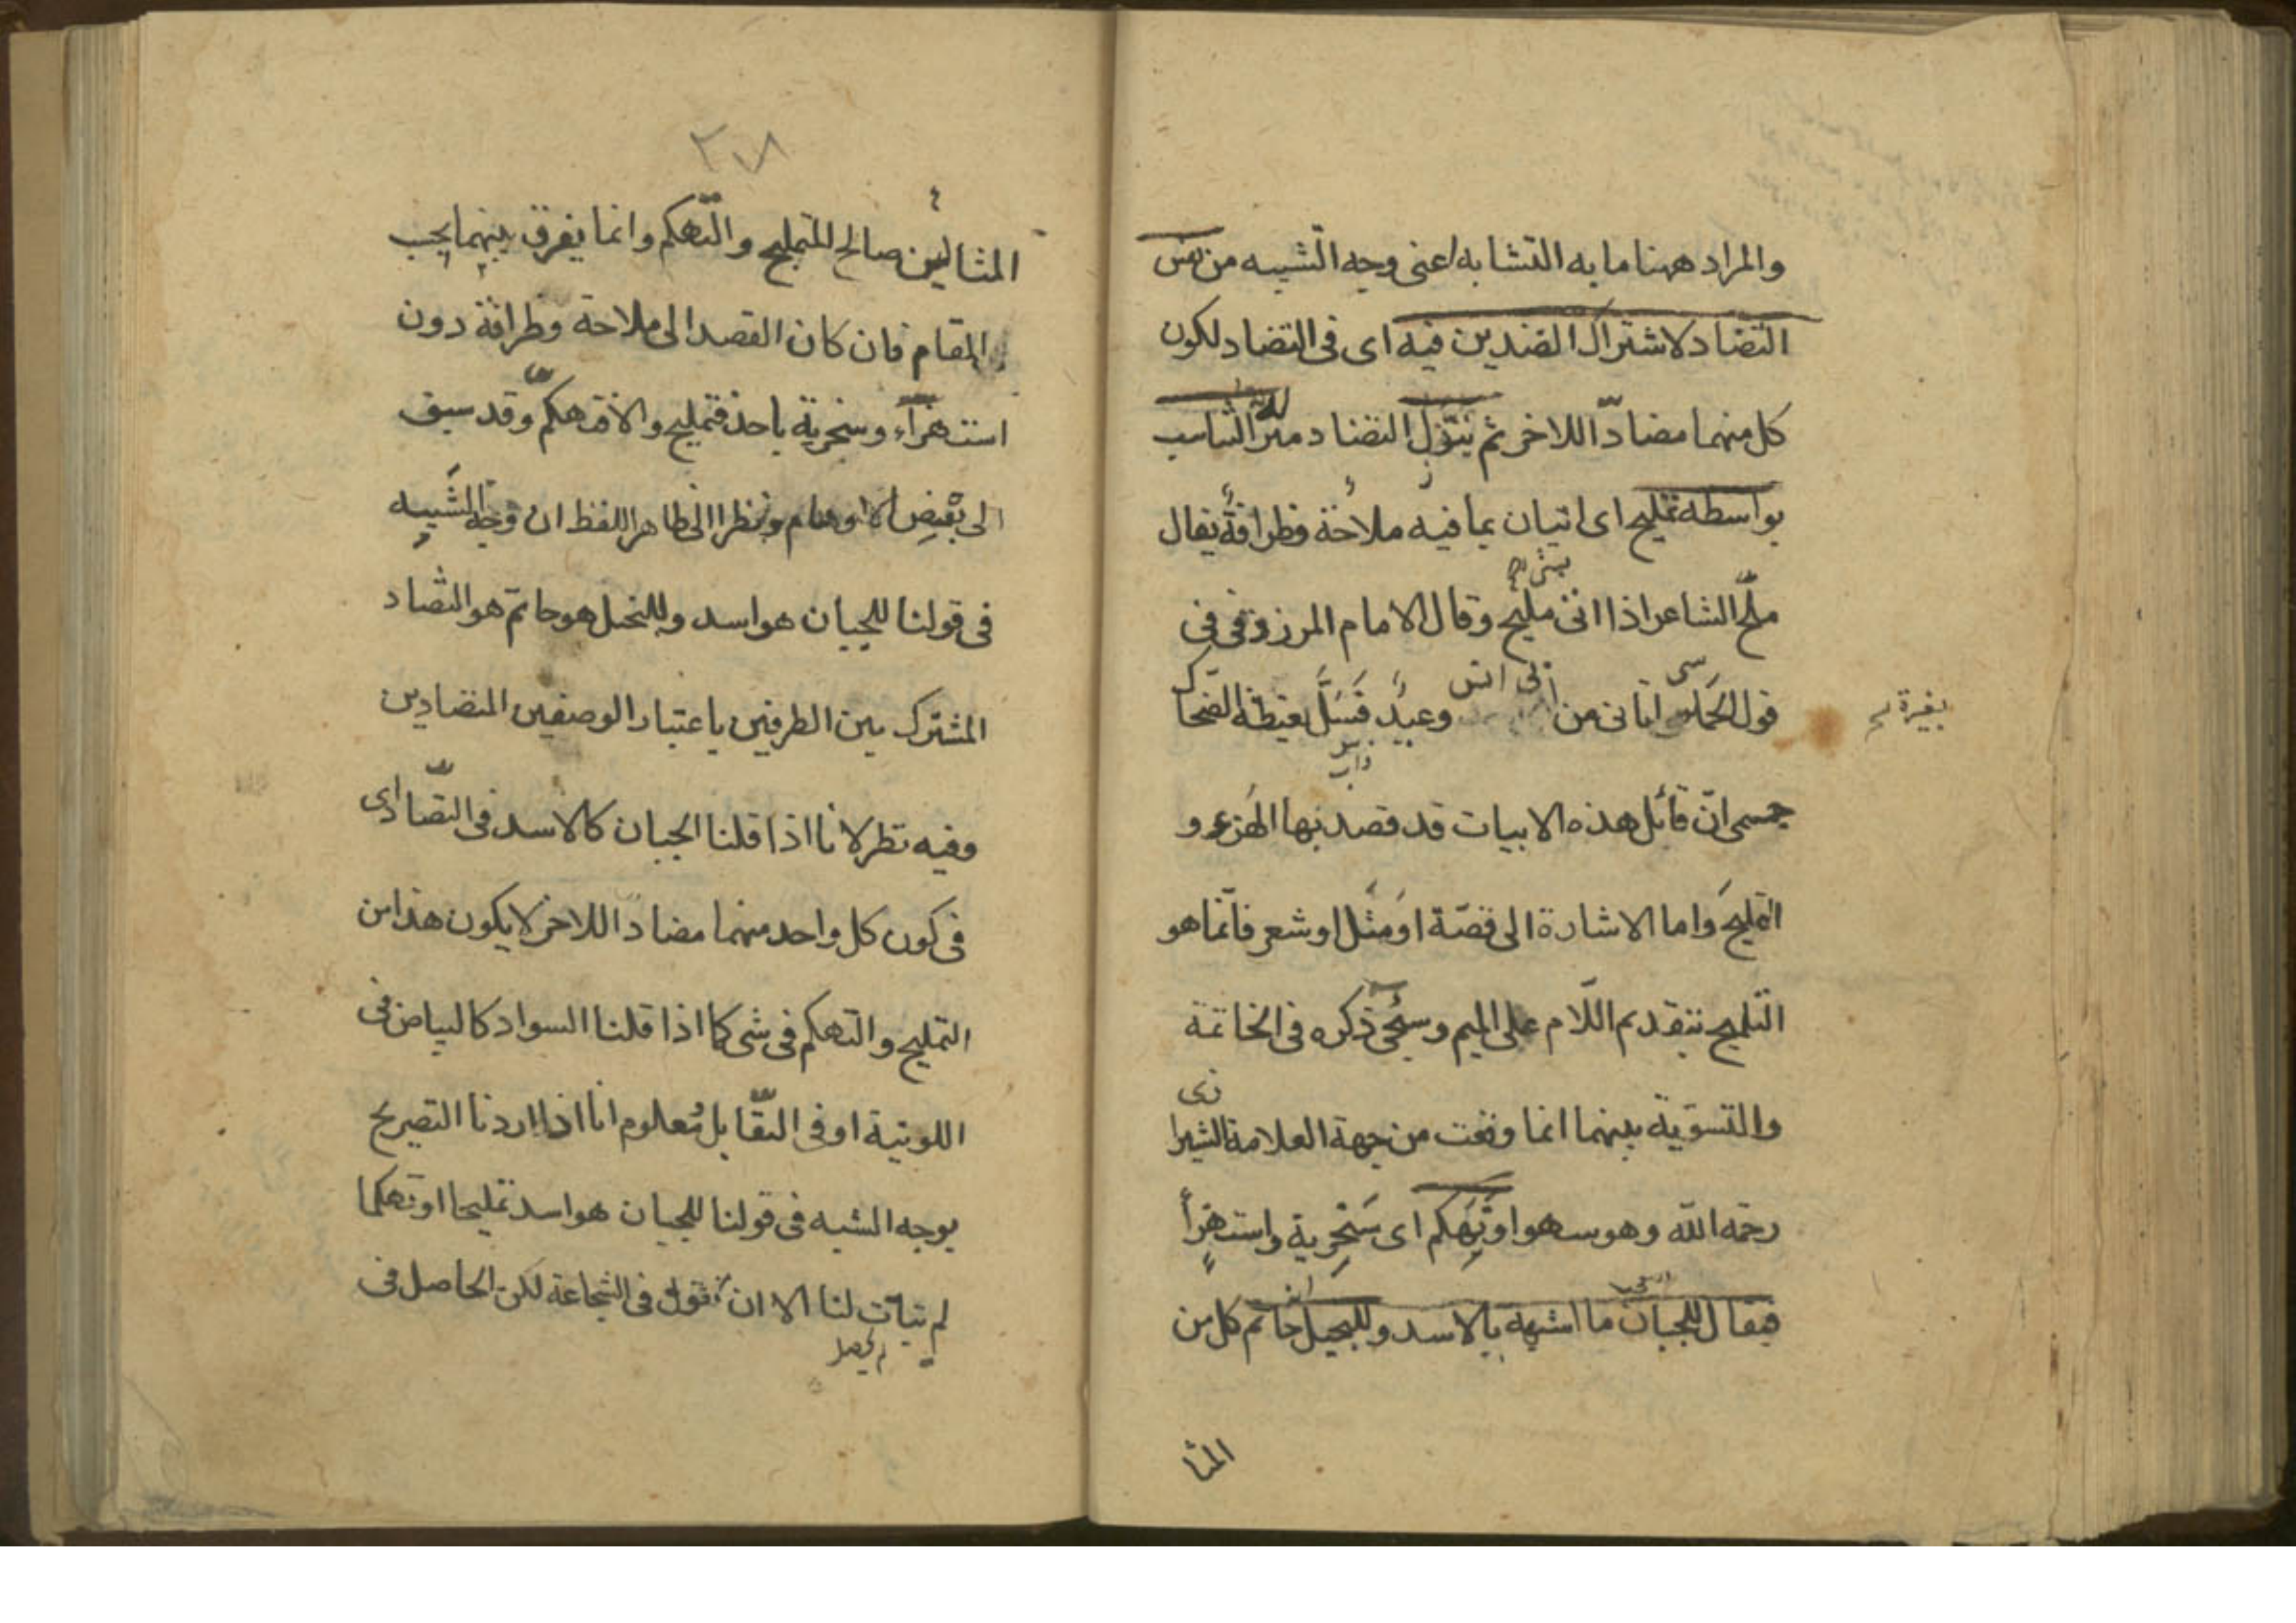 والمراد ههنا ما به التشابه اعنى وجه التشبيه من نفس
التضاد لاشتراك الضدين فيه اى فى التضاد لكون
كل منهما مضادّا للاخر ثم ينزل التضاد منزلة التناسب
بواسطة تمليح اى اتيان بما فيه ملاحة وظرافة يقال
ملّح الشاعر اذا اتى بشئ مليح وقال الامام المرزوقى فى
قول الحماسى اتانى من ابى انس وعيد فسلّ بغيظة الضحاك
جسمى انّ قائل هذه الابيات قد قصد بها الهزء و
التمليح واما الاشارة الى قصّة او مثل او شعر فانّما هو
التلميح بتقديم اللّام على الميم وسيجئ ذكره فى الخاتمة
والتسوية بينهما انما وقعت من جهة العلامة الشيرازى
رحمه الله وهو سهو او تهكم اى سخرية واستهزأ
فيقال للجبان ما اشبهه بالاسد وللبخيل حاتم كل من
المثا
٢٠٨
المثالين صالح للتمليح والتّهكم وانما يفرق بينهما بحسب
المقام فان كان القصد الى ملاحة وظرافة دون
استهزآء وسخرية باحد فتمليح والا فتهكمّ وقد سبق
الى بعض الاوهام نظرا الى ظاهر اللفظ ان وجه التشبيه
فى قولنا للجبان هو اسد وللبخيل هو حاتم هو التضاد
المشترك بين الطرفين باعتبار الوصفين المتضادين
وفيه نظر لانا اذا قلنا الجبان كالاسد فى التضاد اى
فى كون كل واحد منهما مضادا للاخر لا يكون هذا من
التمليح والتهكم فى شئ كما اذا قلنا السواد كالبياض فى
اللونية او فى التقّابل ومعلوم انا اذا اردنا التصريح
بوجه الشبه فى قولنا للجبان هو اسد تمليحا او تهكما
لم يتأت لنا الا ان نقول فى الشجاعة لكن الحاصل فى